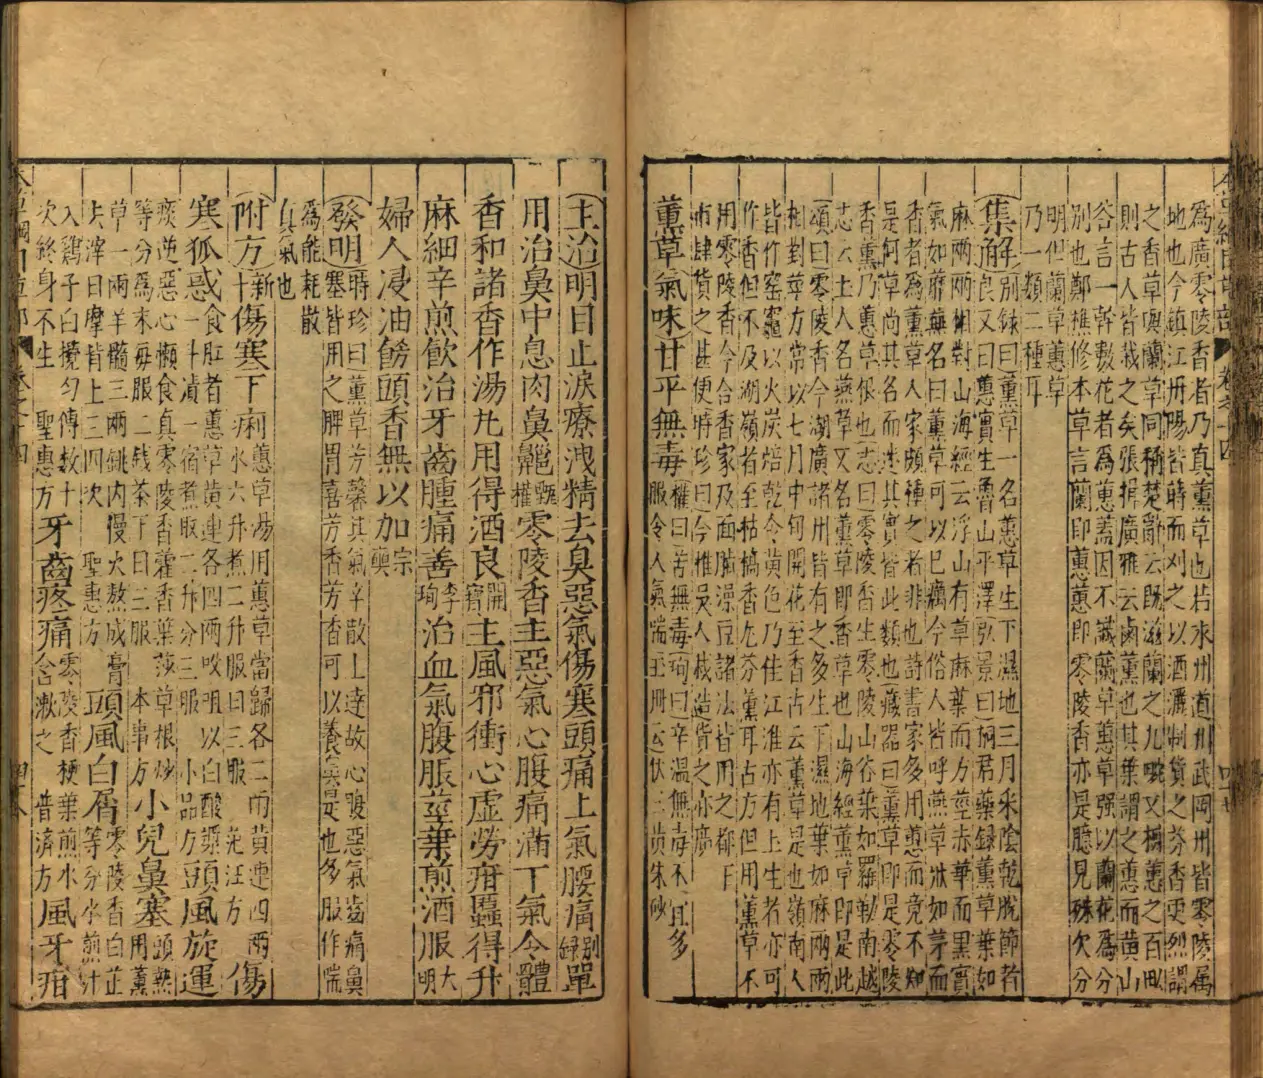 為廣零陵香者乃真薰草也若永州道州武岡州皆零陵属
地也今鎮江丹陽皆蒔而刈之以酒灑制貨之芬香更烈謂
之香草與蘭草同稱楚辭云既滋蘭之九畹又樹蕙之百畝
則古人皆栽之矣張揖廣雅云鹵薰也其葉謂之蕙而黄山
谷言一幹數花者為蕙蓋因不識蘭草蕙草强以蘭花為分
别也鄭樵修本草言蘭即蕙蕙即零陵香亦是臆見殊欠分
明但蘭草蕙草
乃一類二種耳
集解别録曰薰草一名蕙草生下濕地三月采陰乾脫節者
良又曰蕙實生魯山平澤弘景曰桐君藥録薰草葉如
麻兩兩相對山海經云浮山有草麻葉而方莖赤華而黑實
氣如蘼蕪名曰薰草可以已癘今俗人皆呼燕草狀如茅而
香者為薰草人家頗種之者非也詩書家多用蕙而竟不知
是何草尚其名而迷其實皆此類也藏器曰薰草即是零陵
香薰乃蕙草根也志曰零陵香生零陵山谷葉如羅勒南越
志云土人名燕草又名薰草即香草也山海經薰草即是此
頌曰零陵香今湖廣諸州皆有之多生下濕地葉如麻兩兩
相對莖方常以七月中旬開花至香古云薰草是也嶺南人
皆作窑竈以火炭焙乾令黄色乃佳江淮亦有土生者亦可
作香但不及湖嶺者至枯槁香尤芬薰耳古方但用薰草不
用零陵香今合香家及面脂澡豆諸法皆用之都下
市肆貨之甚便時珍曰今惟吳人栽造貨之亦廣
薰草氣味甘平無毒權曰苦無毒珣曰辛温無毒不宜多
服令人氣喘王冊云伏三黄朱砂
主治明目止淚療洩精去臭惡氣傷寒頭痛上氣腰痛别録單
用治鼻中息肉鼻齆甄權零陵香主惡氣心腹痛滿下氣令體
香和諸香作湯丸用得酒良開寶主風邪衝心虚勞疳䘌得升
麻細辛煎飲治牙齒腫痛善李珣治血氣腹脹莖葉煎酒服大明
婦人浸油飾頭香無以加宗奭
發明時珍曰薰草芳馨其氣辛散上達故心腹惡氣齒痛鼻
塞皆用之脾胃喜芳香芳香可以養鼻是也多服作喘
為能耗散
真氣也
附方新十傷寒下痢蕙草湯用蕙草當歸各二兩黄連四兩
水六升煮二升服日三服 范汪方傷
寒狐惑食肛者蕙草黄連各四兩㕮咀以白酸漿
一斗漬一宿煮取二升分三服 小品方頭風旋運
痰逆惡心懶食真零陵香藿香葉莎草根炒
等分為末每服二錢茶下日三服 本事方小兒鼻塞頭熱
用薰
草一兩羊髓三兩銚内慢火熬成膏
去滓日摩背上三四次 聖惠方頭風白屑零陵香白芷
等分水煎汁
入鷄子白攪匀傅數十
次終身不生 聖惠方牙齒疼痛零陵香梗葉煎水
含漱之 普濟方風牙疳